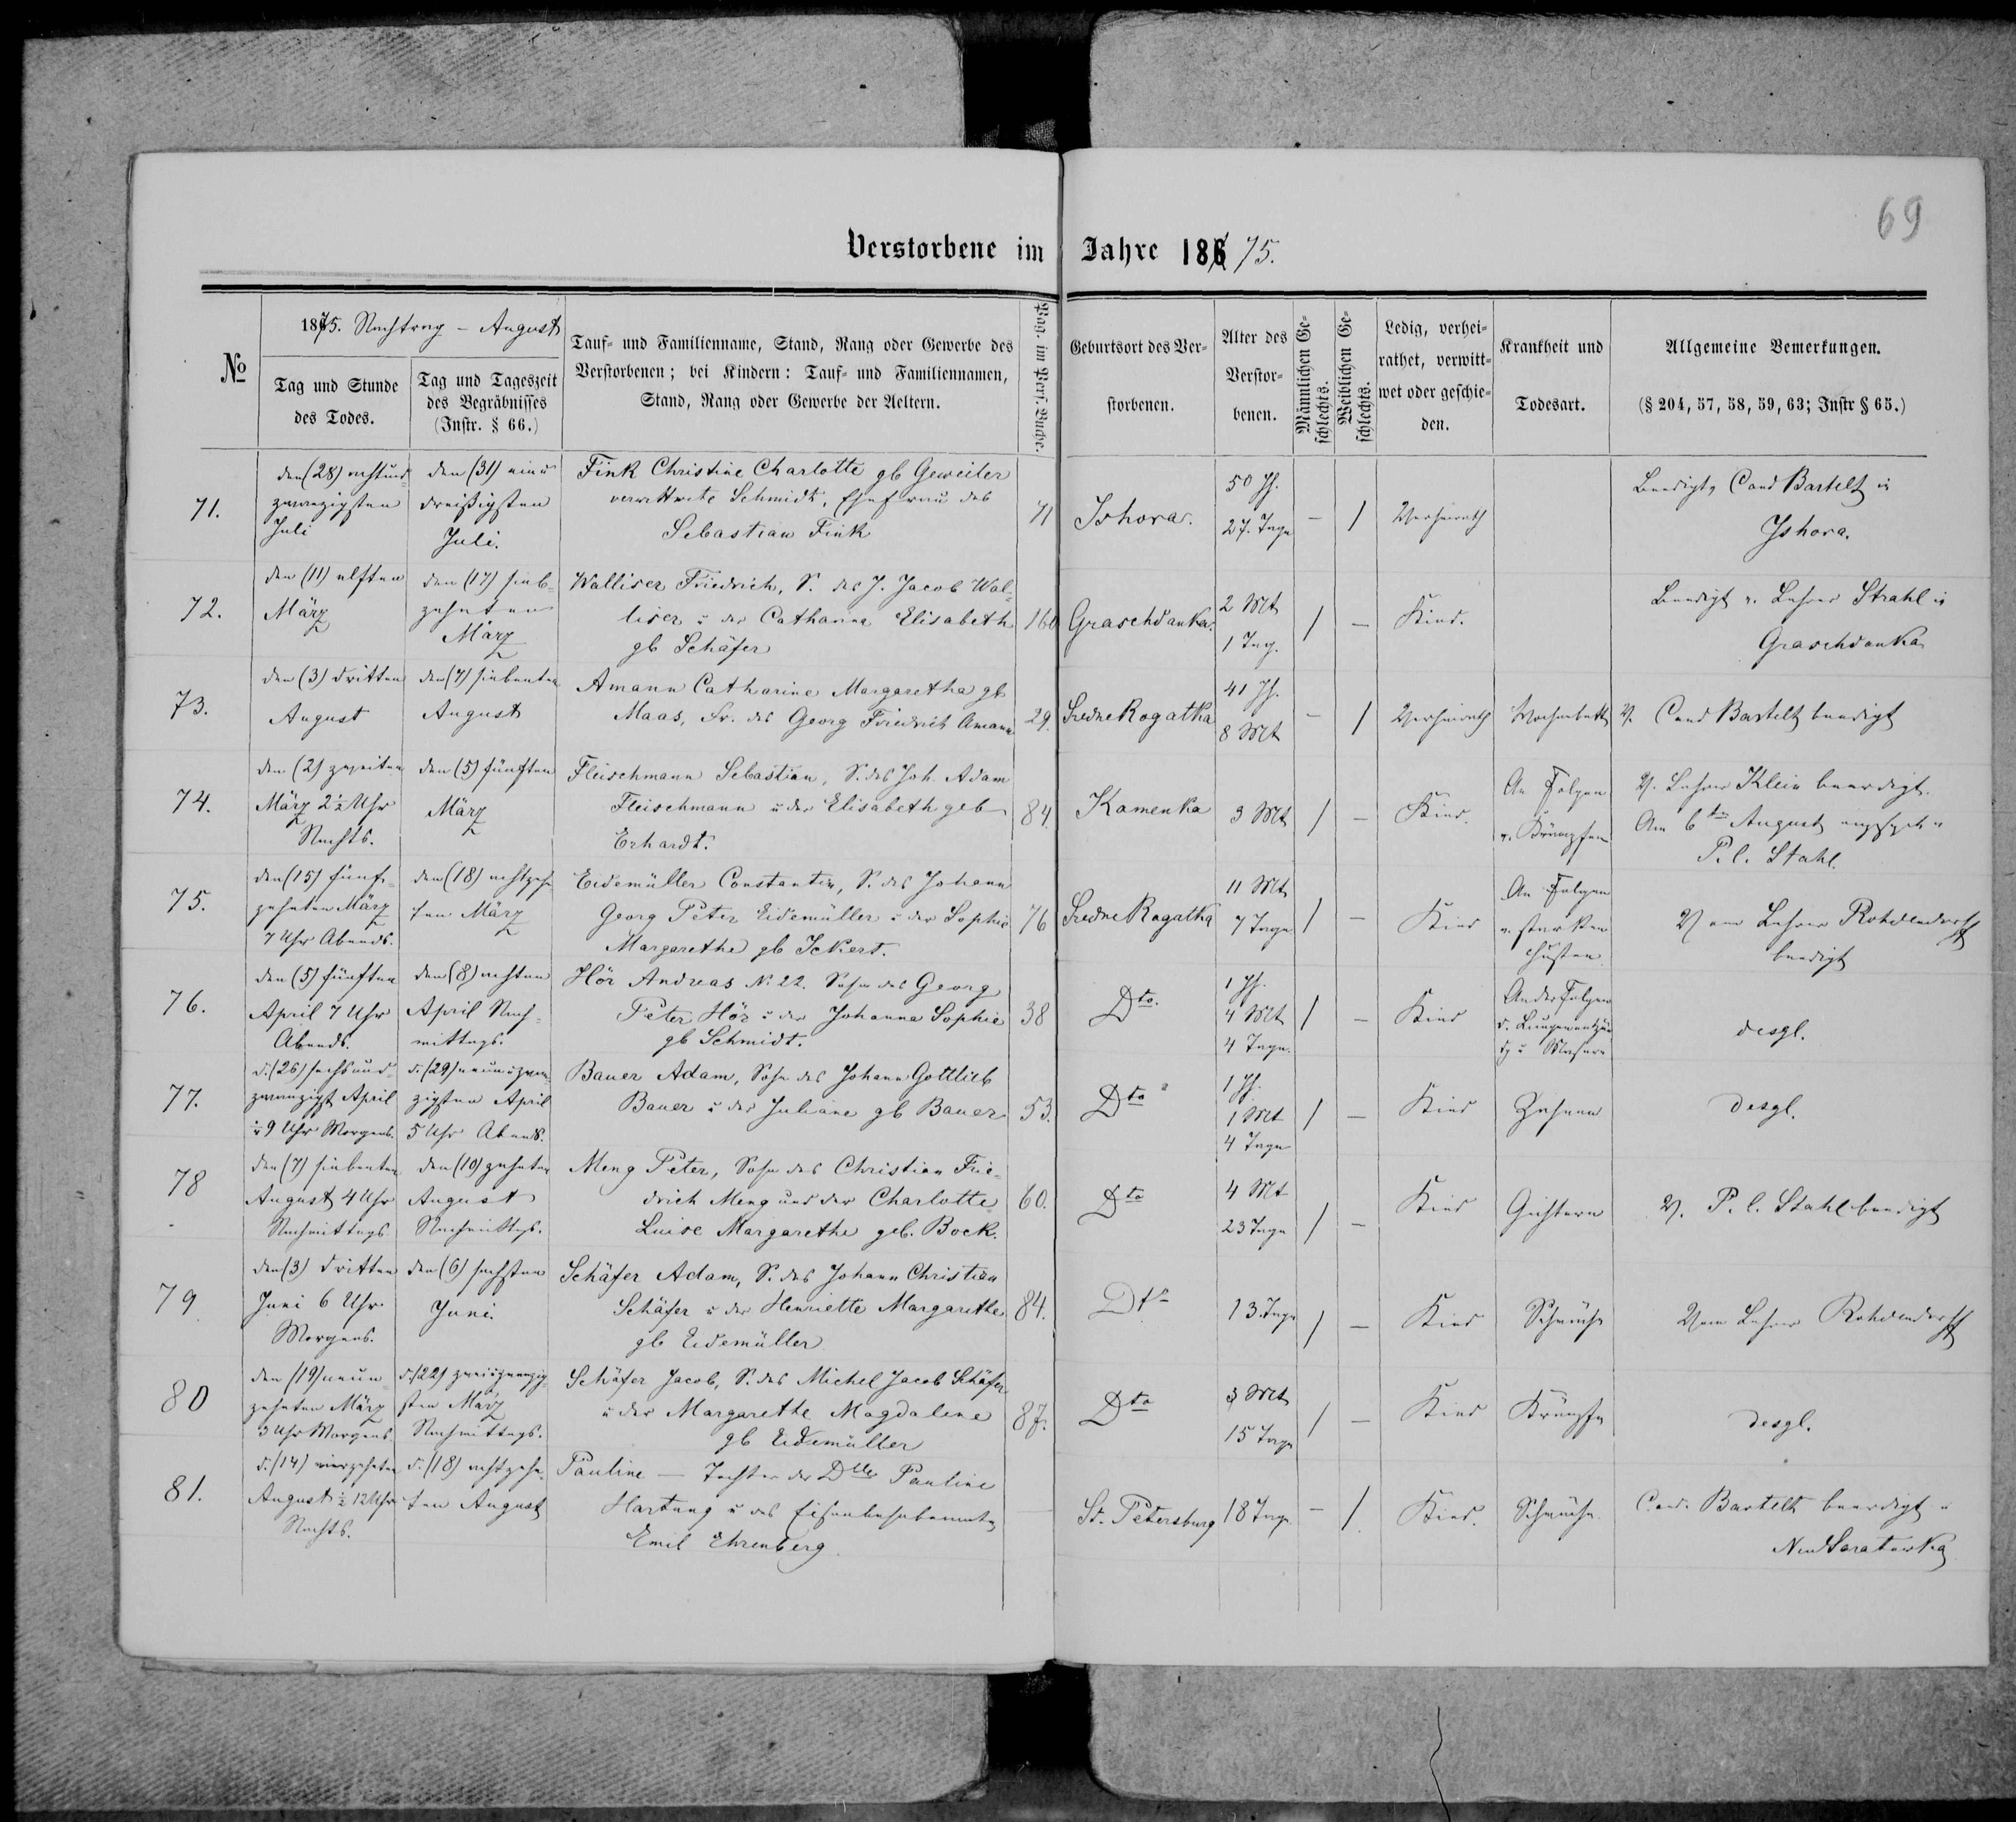 69
Verstorbene im Jahre 186 75.
№
1875. Nachtrag – August
Tag und Stunde des Todes.
Tag und Tageszeit des Begräbnisses (Instr. § 66.)
Tauf- und Familienname, Stand, Rang oder Gewerbe des Verstorbenen; bei Kindern: Tauf- und Familiennamen, Stand, Rang oder Gewerbe der Aeltern.
Pag. im Pers. Buche.
Geburtsort des Verstorbenen.
Alter des Verstorbenen.
Männlichen Geschlechts.
Weiblichen Geschlechts.
Ledig, verheirathet, verwittwet oder geschieden.
Krankheit und Todesart.
Allgemeine Bemerkungen. (§ 204, 57, 58, 59, 63; Instr § 65.)
71. den (28) achtund zwanzigsten Juli
den (31) ein u dreißigsten Juli.
Fink Christine Charlotte gb Geweiler
verwittwete Schmidt, Ehefrau des
Sebastian Fink
71 Ishora. 50 Jh. 27. Tage – / Verheirath
Beerdigt, Cand Bartelt in
Ishora.
72. den (11) elften März
den (17) sieb-zehnten März
Walliser Friedrich, S. des J. Jacob Wal-
liser u der Catharina Elisabeth
gb Schäfer
160 Graschdanka. 2 Mt 1 Tag. / – Kind.
Beerdigt v. Lehrer Strahl in
Graschdanka
73. den (3) dritten August
den (7) siebenten August
Amann Catharine Margaretha gb
Maas, Fr. des Georg Friedrich Amann
29. Sredne Rogatka 41 Jh. 8 Mt – / Verheirath Wochenbett V. Cand Bartelt beerdigt
74. den (2) zweiten März 2½ Uhr Nachts.
den (5) fünften März
Fleischmann Sebastian, S. des Joh. Adam
Fleischmann u der Elisabeth geb
Erhardt.
84. Kamenka 3 Mt / – Kind. An Folgen v. Krämpfen
V. Lehrer Klein beerdigt.
Am 6ten August
P. l. Stahl.
75. den (15) fünf-zehnten März 7 Uhr Abends.
den (18) achtzehn-ten März
Eidemüller Constantin, S. des Johann
Georg Peter Eidemüller u der Sophie
Margarethe gb Ickert.
76 Sredne Rogatka 11 Mt 7 Tage / – Kind An Folgen v. starken Husten
Vom Lehrer Rohdendorff
beerdigt
76. den (5) fünften April 7 Uhr Abends.
den (8) achten April Nach-mittags.
Hör Andreas No 22. Sohn des Georg
Peter Hör u der Johanna Sophie
gb Schmidt.
38 Dto. 1 Jh. 4 Mt 4 Tage. / – Kind An der Folgen d. Lungenentzün dg u Masern desgl.
77. d. (26) sechsund zwanzigst April ½ 9 Uhr Morgens.
d. (29) neun u zwan zigsten April 5 Uhr Abends.
Bauer Adam, Sohn des Johann Gottlieb
Bauer u der Juliane gb Bauer
53. Dto 1 Jh. 1 Mt 4 Tage / – Kind Zahnen desgl.
78 den (7) siebenten August 4 Uhr Nachmittags
den (10) zehnten August Nachmittgs.
Meng Peter, Sohn des Christian Frie-
drich Meng und der Charlotte
Luise Margarethe geb. Bock.
60. Dto 4 Mt 23 Tage / – Kind V. P. l. Stahl beerdigt
79. den (3) dritten Juni 6 Uhr Morgens.
den (6) sechsten Juni.
Schäfer Adam, S. des Johann Christian
Schäfer u der Henriette Margarethe
gb Eidemüller
84. Dto 13. Tage / – Kind Schwäche Vom Lehrer Rohdendorff
80 den (19) neun-zehnten März 3 Uhr Morgens
d. (22) zwei u zwanzig-sten März Nachmittags.
Schäfer Jacob, S. des Michel Jacob Schäfer
u der Margarethe Magdalene
gb Eidemüller
87. Dto 3 Mt 15 Tage / – Kind Krämpfe desgl.
81. d. (14) vierzehnten August ½ 12 Uhr Nachts.
d. (18) achtzehn-ten August
Pauline – Tochter der Dlle Pauline
Hartung u des Eisenbahnbeamten
Emil Ehrenberg.
– St. Petersburg 18 Tage – / Kind. Schwäche.
Cand. Bartelt beerdigt in
Neu Saratowka